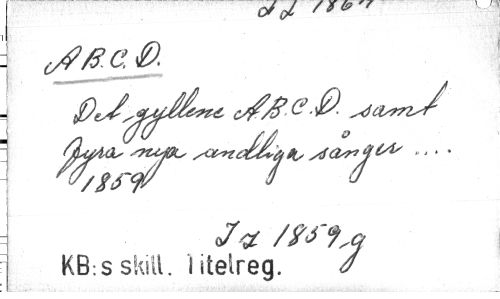 A.B.C.D.
Det gyllene A.B.C.D. samt
fyra nya andliga sånger ....
1859
1859 g
KB:s skill. Titelreg.